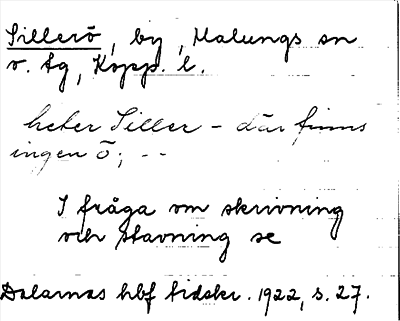 Sillerö, by, Malungs sn
v. tg, Kopp. l.
heter Siller - där finns
ingen ö; --
I fråga om skrivning
och stavning se
Dalarnas hbf tidskr. 1922, s. 27.